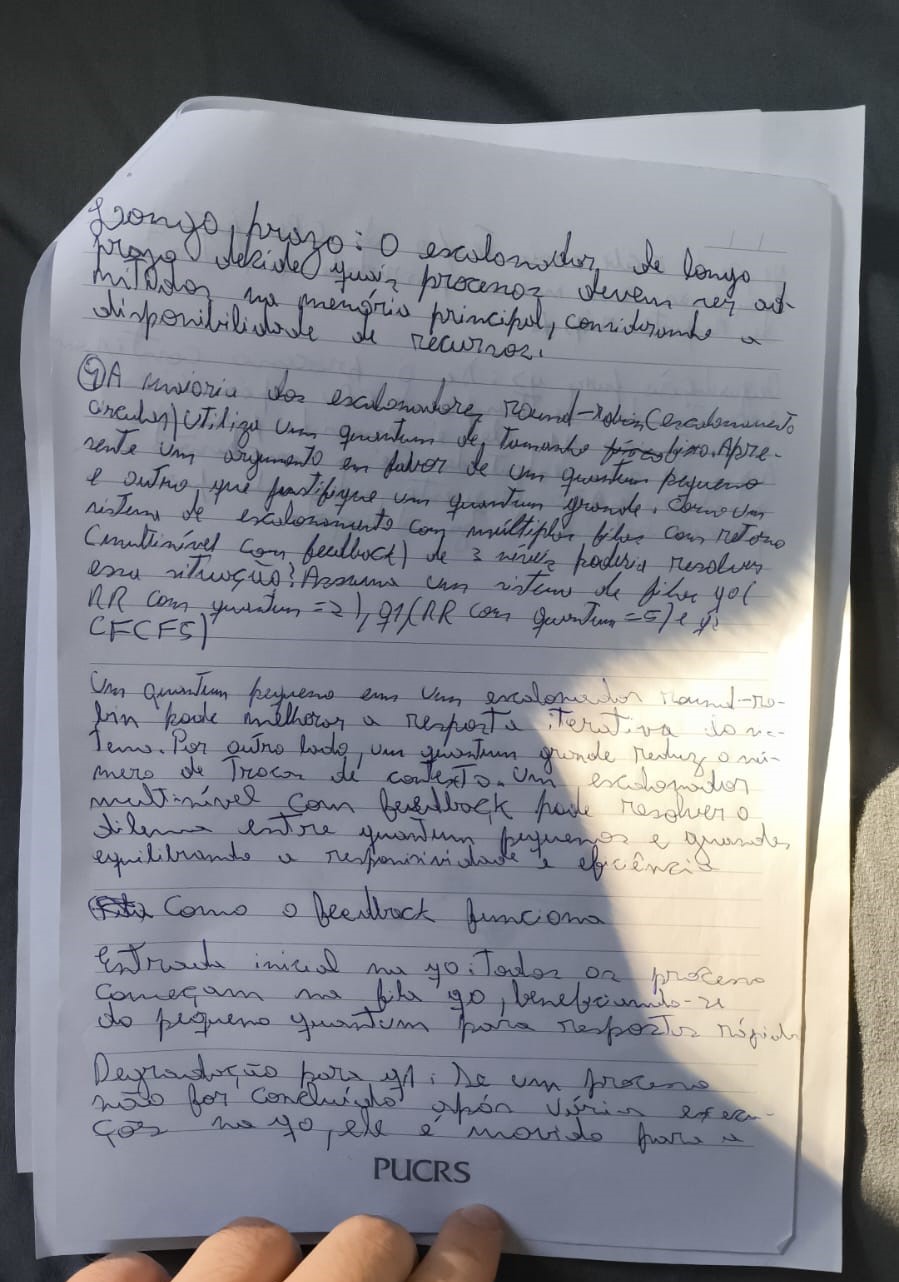 Longo prazo: O escalonador de longo
prazo decide quais processos devem ser ad-
mitidos na memória principal, considerando a
disponibilidade de recursos.
9) A maioria dos escalonadores round-robin (escalonamento
circular) utiliza um quantum de tamanho fixo. Apre-
sente um argumento em favor de um quantum pequeno
e outro que justifique um quantum grande. Como um
sistema de escalonamento com múltiplas filas com retorno
(multinível com feedback) de 3 níveis poderia resolver
essa situação? Assuma um sistema de filas q0(
RR com quantum = 2), q1(RR com quantum = 5) e
CFCFS)
Um quantum pequeno em um escalonador round-ro-
bin pode melhorar a resposta iterativa do sis-
tema. Por outro lado, um quantum grande reduz o nú-
mero de trocas de contexto. Um escalonador
multinível com feedback pode resolver o
dilema entre quantum pequenos e grandes
equilibrando a responsividade e eficiência
Como o feedback funciona
Entrada inicial na q0: Todos os processo
começam na fila q0, beneficiando-se
do pequeno quantum para respostas rápida
Degradação para q1: Se um processo
não for concluído após várias execu-
ções na q0, ele é movido para a
PUCRS